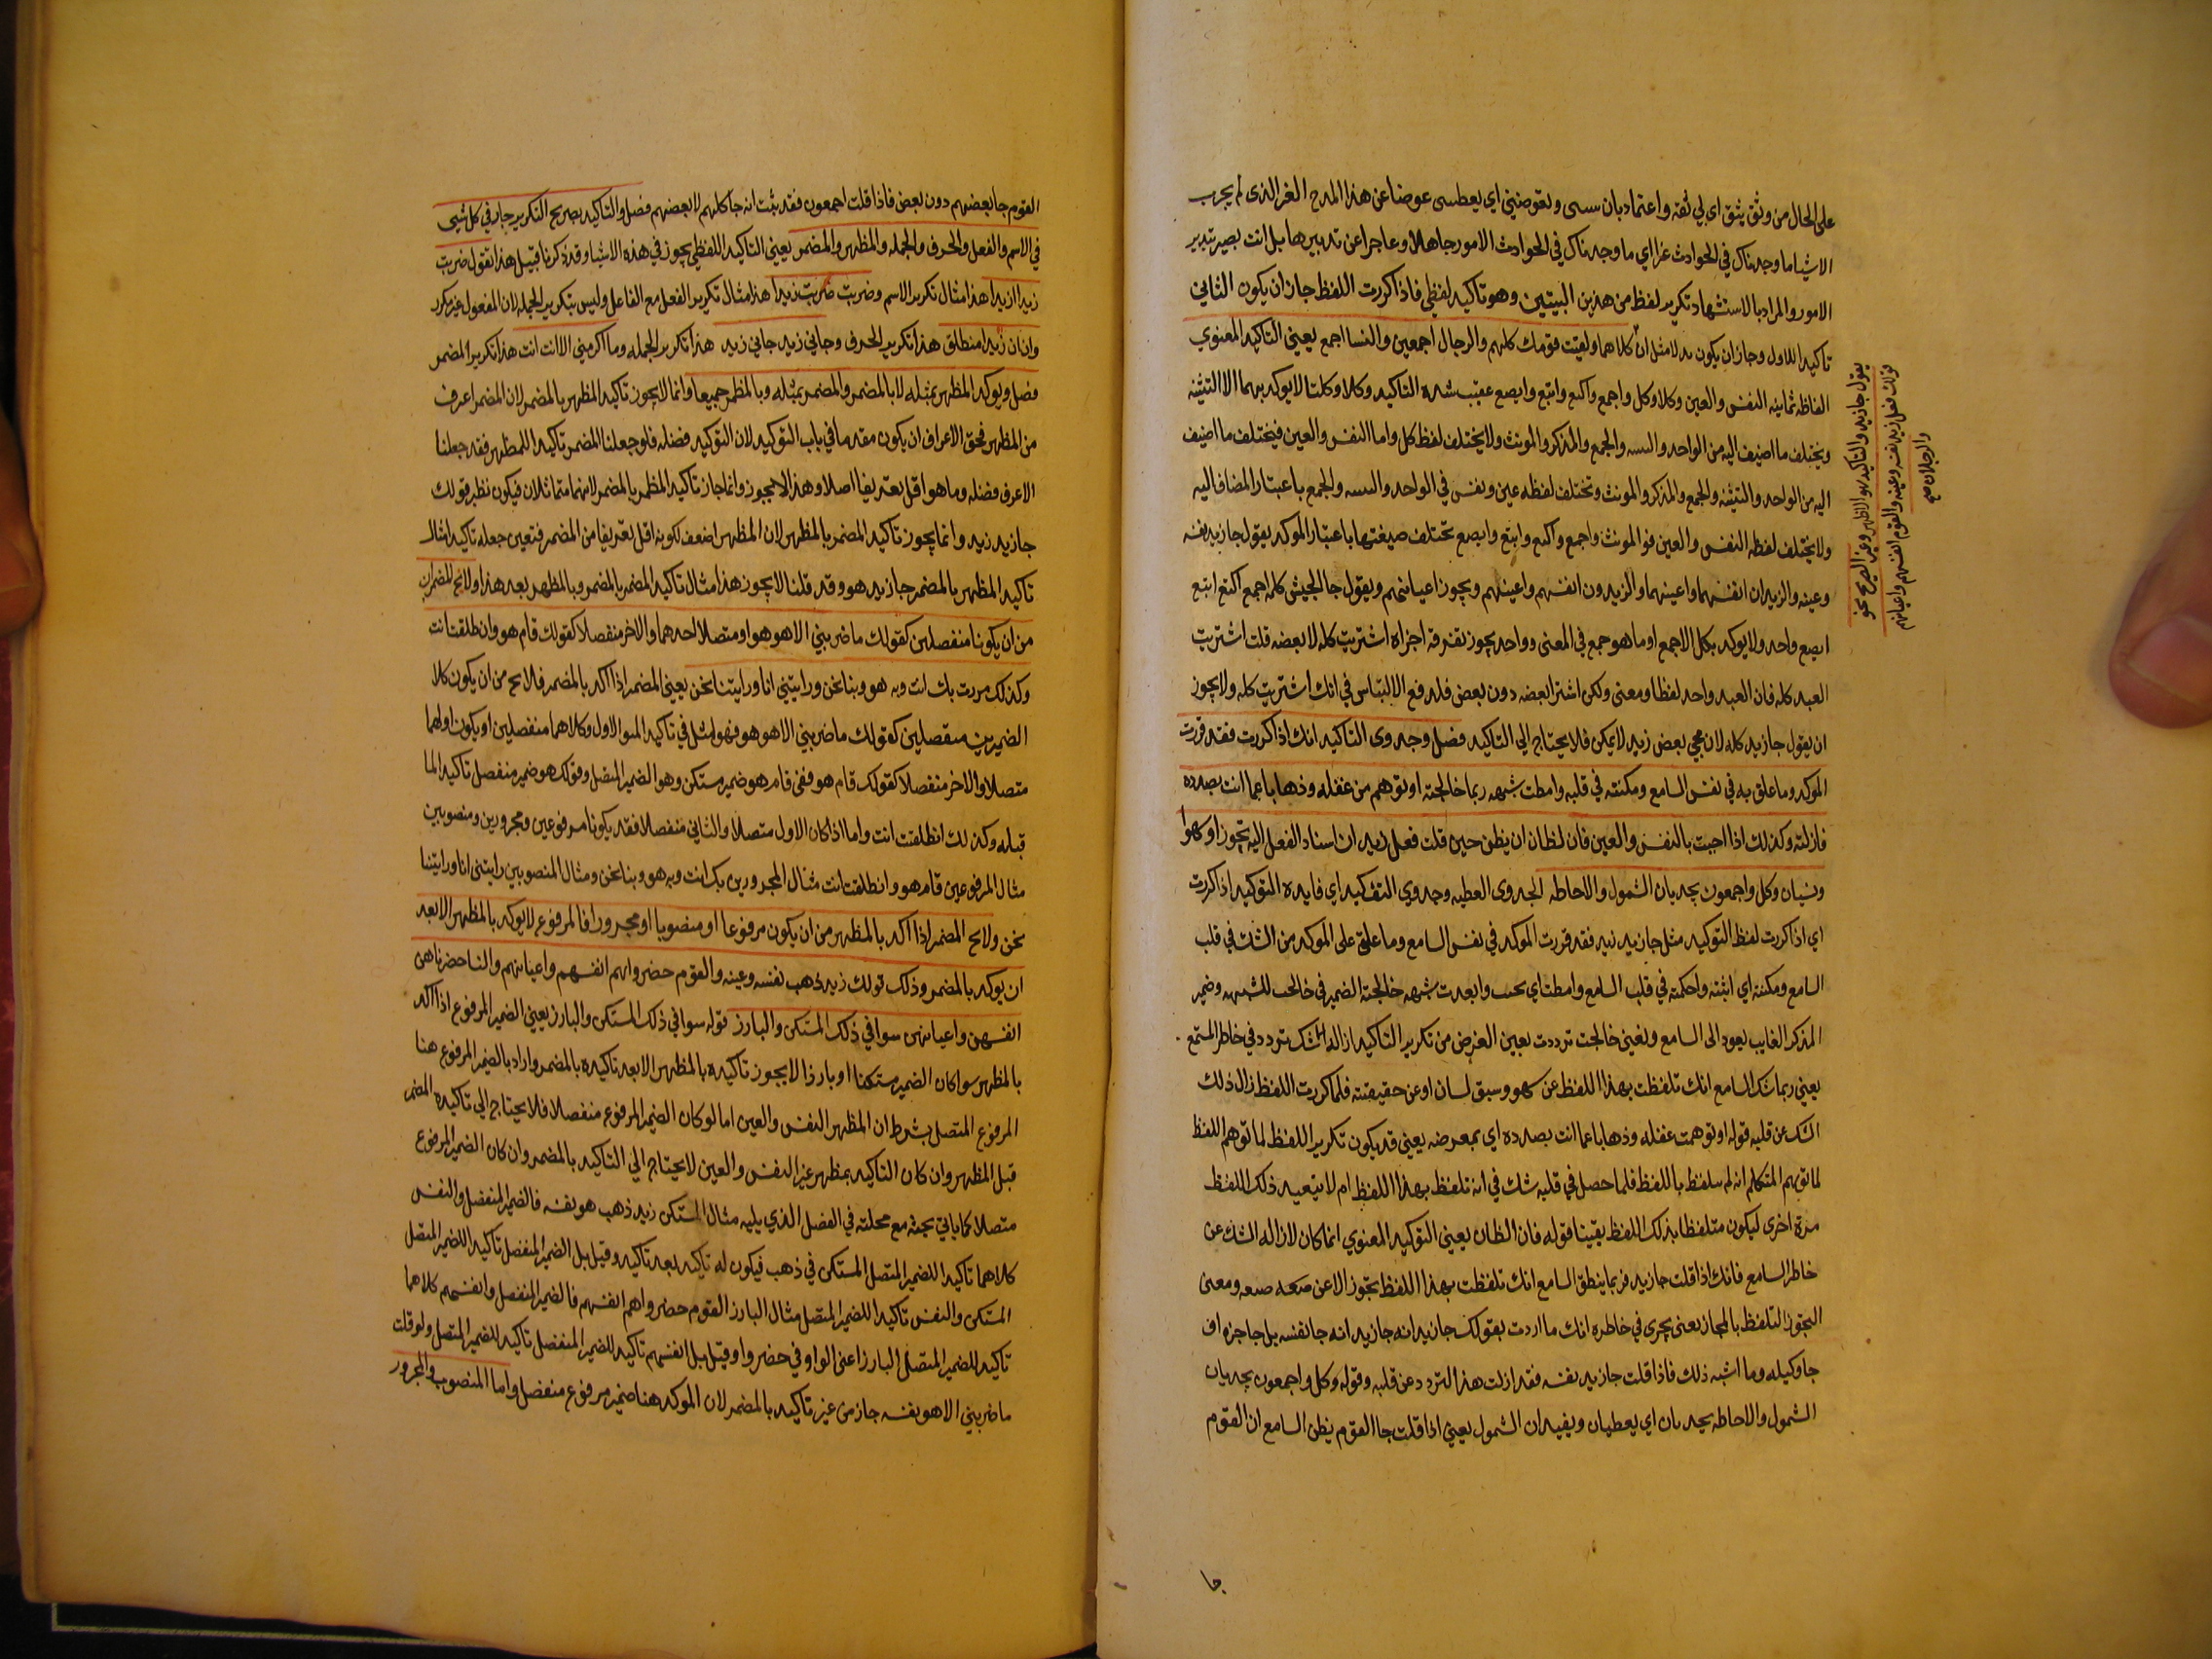 على الحال من وثق يثق اي لي ثقه واعتماد بان سسى ويعوضني اي يعطسى عوضا عن هذا المدح الغر الذى لم يجرب
الاشيا ما وجدناك في الحوادث غرا اي ما وجدناك في الحوادث الامور جاهلا وعاجرا عن تدبيرها بل انت بصير بتدبير
الامور والمراد بالاستشهاد تكرير لفظ من هذين البيتين وهو تاكيد لفظي فاذا كررت اللفظ جاز ان يكون الثاني
تاكيدا للاول وجاز ان يكون بدلا مثل ان كلاهما ولقيت قومك كلهم والرجال اجمعين والنسا اجمع يعني التاكيد المعنوي
الفاظه ثمانيه النفس والعين وكلا وكل واجمع واكتع وابتع وابصع عقيب شده التاكيد وكلا وكلتا لا يوكد بهما الا التثنيه
ويختلف ما اضيف اليه من الواحد والتثنيه والجمع والمذكر والمونث ولا يختلف لفظ كل واما النفس والعين فيختلف ما اضيف
اليه من الواحد والتثنيه والجمع والمذكر والمونث وتختلف لفظه عين ونفس في الواحد والتثنيه والجمع باعتبار المضاف اليه
ولا يختلف لفظه النفس والعين في المونث واجمع واكتع وابتع وابصع تختلف صيغتها باعتبار الموكد يقول جا زيد نفسه
وعينه والزيدان انفسهما واعينهما والزيدون انفسهم واعينهم ويجوز اعيانهم ويقول جا الجيش كله اجمع اكتع ابتع
ابصع واحد ولا يوكد بكل الا جمع او ما هو جمع في المعنى وواحد يجوز تفرقه اجزاه اشتريت كله لا بعضه قلت اشتريت
العبد كله فان العبد واحد لفظا ومعنى ولكن اشترا بعضه دون بعض فلدفع الالتباس في انك اشتريت كله ولا يجوز
ان يقول جا زيد كله لان مجي بعض زيد لا يمكن فلا يحتاج الي التاكيد فصل وجدوى التاكيد انك اذا كررت فقد قررت
الموكد وما علق به في نفس السامع ومكنته في قلبه وامطت شبهه ربما خالجته او توهم من غفله وذهابا عما انت بصدده
فازلته وكذلك اذا اجيت بالنفس والعين فان لظان ان يظن حين قلت فعل زيد ان اسناد الفعل اليه تجوز او سهوا
ونسيان وكل واجمعون يجديان الشمول والاحاطه الجدوى العطيه وجدوي التوكيد اي فايده التوكيد اذا كررت
اي اذا كررت لفظ التوكيد مثل جا زيد زيد فقد قررت الموكد في نفس السامع وما علق على الموكد من الشك في قلب
السامع ومكنته اي اثبته واحكمته في قلب السامع وامطت اي نحيت وابعدت شبهه خالجته الضمير في خالجت للشبهه وضمير
المذكر الغايب يعود الى السامع ونعني خالجت ترددت يعين الغرض من تكرير التاكيد ازاله الشك تردد في خاطر المتمع
يعني ربما شك السامع انك تلفظت بهذا اللفظ عن سهو وسبق لسان او عن حقيقته فلما كررت اللفظ زال ذلك
الشك عن قلبه قوله او توهمت غفله وذهابا عما انت بصدده اي بمعرضه يعني قد يكون تكرير اللفظ لما توهم اللفظ
لما توهم المتكلم انه لم يتلفظ باللفظ فلما حصل في قلبه شك في انه تلفظ بهذا اللفظ ام لا يعيد ذلك اللفظ
مرة اخرى ليكون متلفظا بذلك اللفظ يقينا قوله فان الظان يعنى التوكيد المعنوي انما كان لازاله الشك عن
خاطر السامع فانك اذا قلت جا زيد فربما ينطق السامع انك تلفظت بهذا اللفظ تجوز الا عن ومعنى
التجوز التلفظ بالمجاز يعنى يجري في خاطره انك ما اردت بقولك جا زيد انه جا زيد انه جا نفسه بل جا جزه اف
جا وكيله وما اشبه ذلك فاذا قلت جا زيد نفسه فقد ازلت هذا التردد عن قلبه وقوله وكل واجمعون يجديان
الشمول والاحاطه يجديان اي يعطيان ويفيدان الشمول يعني اذا قلت جا القوم يظن السامع ان القوم
يقول جا زيد والتاكيد هو الظهر وغير الصريح نحو
قولك فعل زيد نفسه وعينه والقوم انفسهم واعيانهم
والرجلان صح
جا
القوم جا بعضهم دون بعض فاذا قلت اجمعون فقد بثت انه جا كلهم لا بعضهم فصل والتاكيد بصريح التكرير جار في كل شيى
في الاسم والفعل والحرف والجمله والمظهر والمضمر يعني التاكيد اللفظي يجوز في هذه الاشيا وقد ذكرنا قبيل هذا تقول ضربت
زيدا زيدا هذا مثال تكرير الاسم وضربت ضربت زيدا هذا مثال تكرير الفعل مع الفاعل وليس بتكرير الجمله لان المفعول غير مكرر
وان ان زيدا منطلق هذا تكرير الحرف وجاني زيد جاني زيد هذا تكرير الجمله وما اكرمني الا انت انت هذا تكرير المضمر
فصل ويوكد المظهر بمثله لا بالمضمر والمضمر بمثله وبالمظهر جميعا وانما لا يجوز تاكيد المظهر بالمضمر لان المضمر اعرف
من المظهر فحق الاعراف ان يكون مقدما في باب التوكيد لان التوكيد فضله فلو جعلنا المضمر تاكيدا للمظهر فقد جعلنا
الاعرف فضله وما هو اقل تعريفا اصلا وهذا لا يجوز وانما جاز تاكيد المظهر بالمضمر لانهما متماثلان فيكون نظير قولك
جا زيد زيد وانما يجوز تاكيد المضمر بالمظهر لان المظهر اضعف لكونه اقل تعريفا من المضمر فتعين جعله تاكيدا مثال
تاكيد المظهر بالمضمر جا زيد هو وقد قلنا لا يجوز هذا مثال تاكيد المضمر بالمضمر وبالمظهر بعد هذا ولا يخ المضمران
من ان يكونا منفصلين كقولك ما ضربني الا هو هو او متصلا احدهما والاخر منفصلا كقولك قام هو وانطلقت انت
وكذلك مررت بك انت وبه هو وبنا نحن ورايتني انا ورايتنا نحن يعني المضمر اذا اكد بالمضمر فلا يخ من ان يكون كلا
الضميرين منفصلين كقولك ما ضربني الا هو هو فهو مثل في تاكيد الاول وكلاهما منفصلين او يكون اولهما
متصلا والاخر منفصلا كقولك قام هو ففي قام هو ضمير مستكن وهو الضمير المتصل وقولك هو ضمير منفصل تاكيد لما
قبله وكذلك انطلقت انت واما اذا كان الاول متصلا والثاني منفصلا فقد يكونا مرفوعين ومجرورين ومنصوبين
مثال المرفوعين قام هو وانطلقت انت مثال المجرورين بك انت وبه هو وبنا نحن ومثال المنصوبين رايتنى انا ورايتنا
نحن ولا يخ المضمر اذا اكد بالمظهر من ان يكون مرفوعا او منصوبا او مجرورا فالمرفوع لا يوكد بالمظهر الا بعد
ان يوكد بالمضمر وذلك قولك زيد ذهب نفسه وعينه والقوم حضروا هم انفسهم واعيانهم والنسا حضرن هن
انفسهن واعيانهن سوا في ذلك المستكن والبارز قوله سوا في ذلك المستكن والبارز يعني الضمير المرفوع اذا اكد
بالمظهر سوا كان الضمير مستكنا او بارزا لا يجوز تاكيده بالمظهر الا بعد تاكيده بالمضمر واراد بالضمير المرفوع هنا
المرفوع المتصل بشرط ان المظهر النفس والعين اما لو كان الضمير المرفوع منفصلا فلا يحتاج الي تاكيده المضمر
قبل المظهر وان كان التاكيد بمظهر غير النفس والعين لا يحتاج الي التاكيد بالمضمر وان كان الضمير المرفوع
متصلا كما ياتي بحثه مع محلته في الفصل الذي يليه مثال المستكن زيد ذهب هو نفسه فالضمير المنفصل والنفس
كلاهما تاكيد للضمير المتصل المستكن في ذهب فيكون له تاكيد بعد تاكيد وقيل بل الضمير المنفصل تاكيد للضمير المتصل
المستكن والنفس تاكيد للضمير المتصل مثال البارز القوم حضروا هم انفسهم فالضمير المنفصل وانفسهم كلاهما
تاكيد للضمير المتصل البارز اعنى الواو في حضروا وقيل بل انفسهم تاكيد للضمير المنفصل تاكيد للضمير المتصل ولو قلت
ما ضربني الا هو نفسه جاز من غير تاكيد بالمضمر لان الموكد هنا ضمير مرفوع منفصل واما المنصوب والمجرور